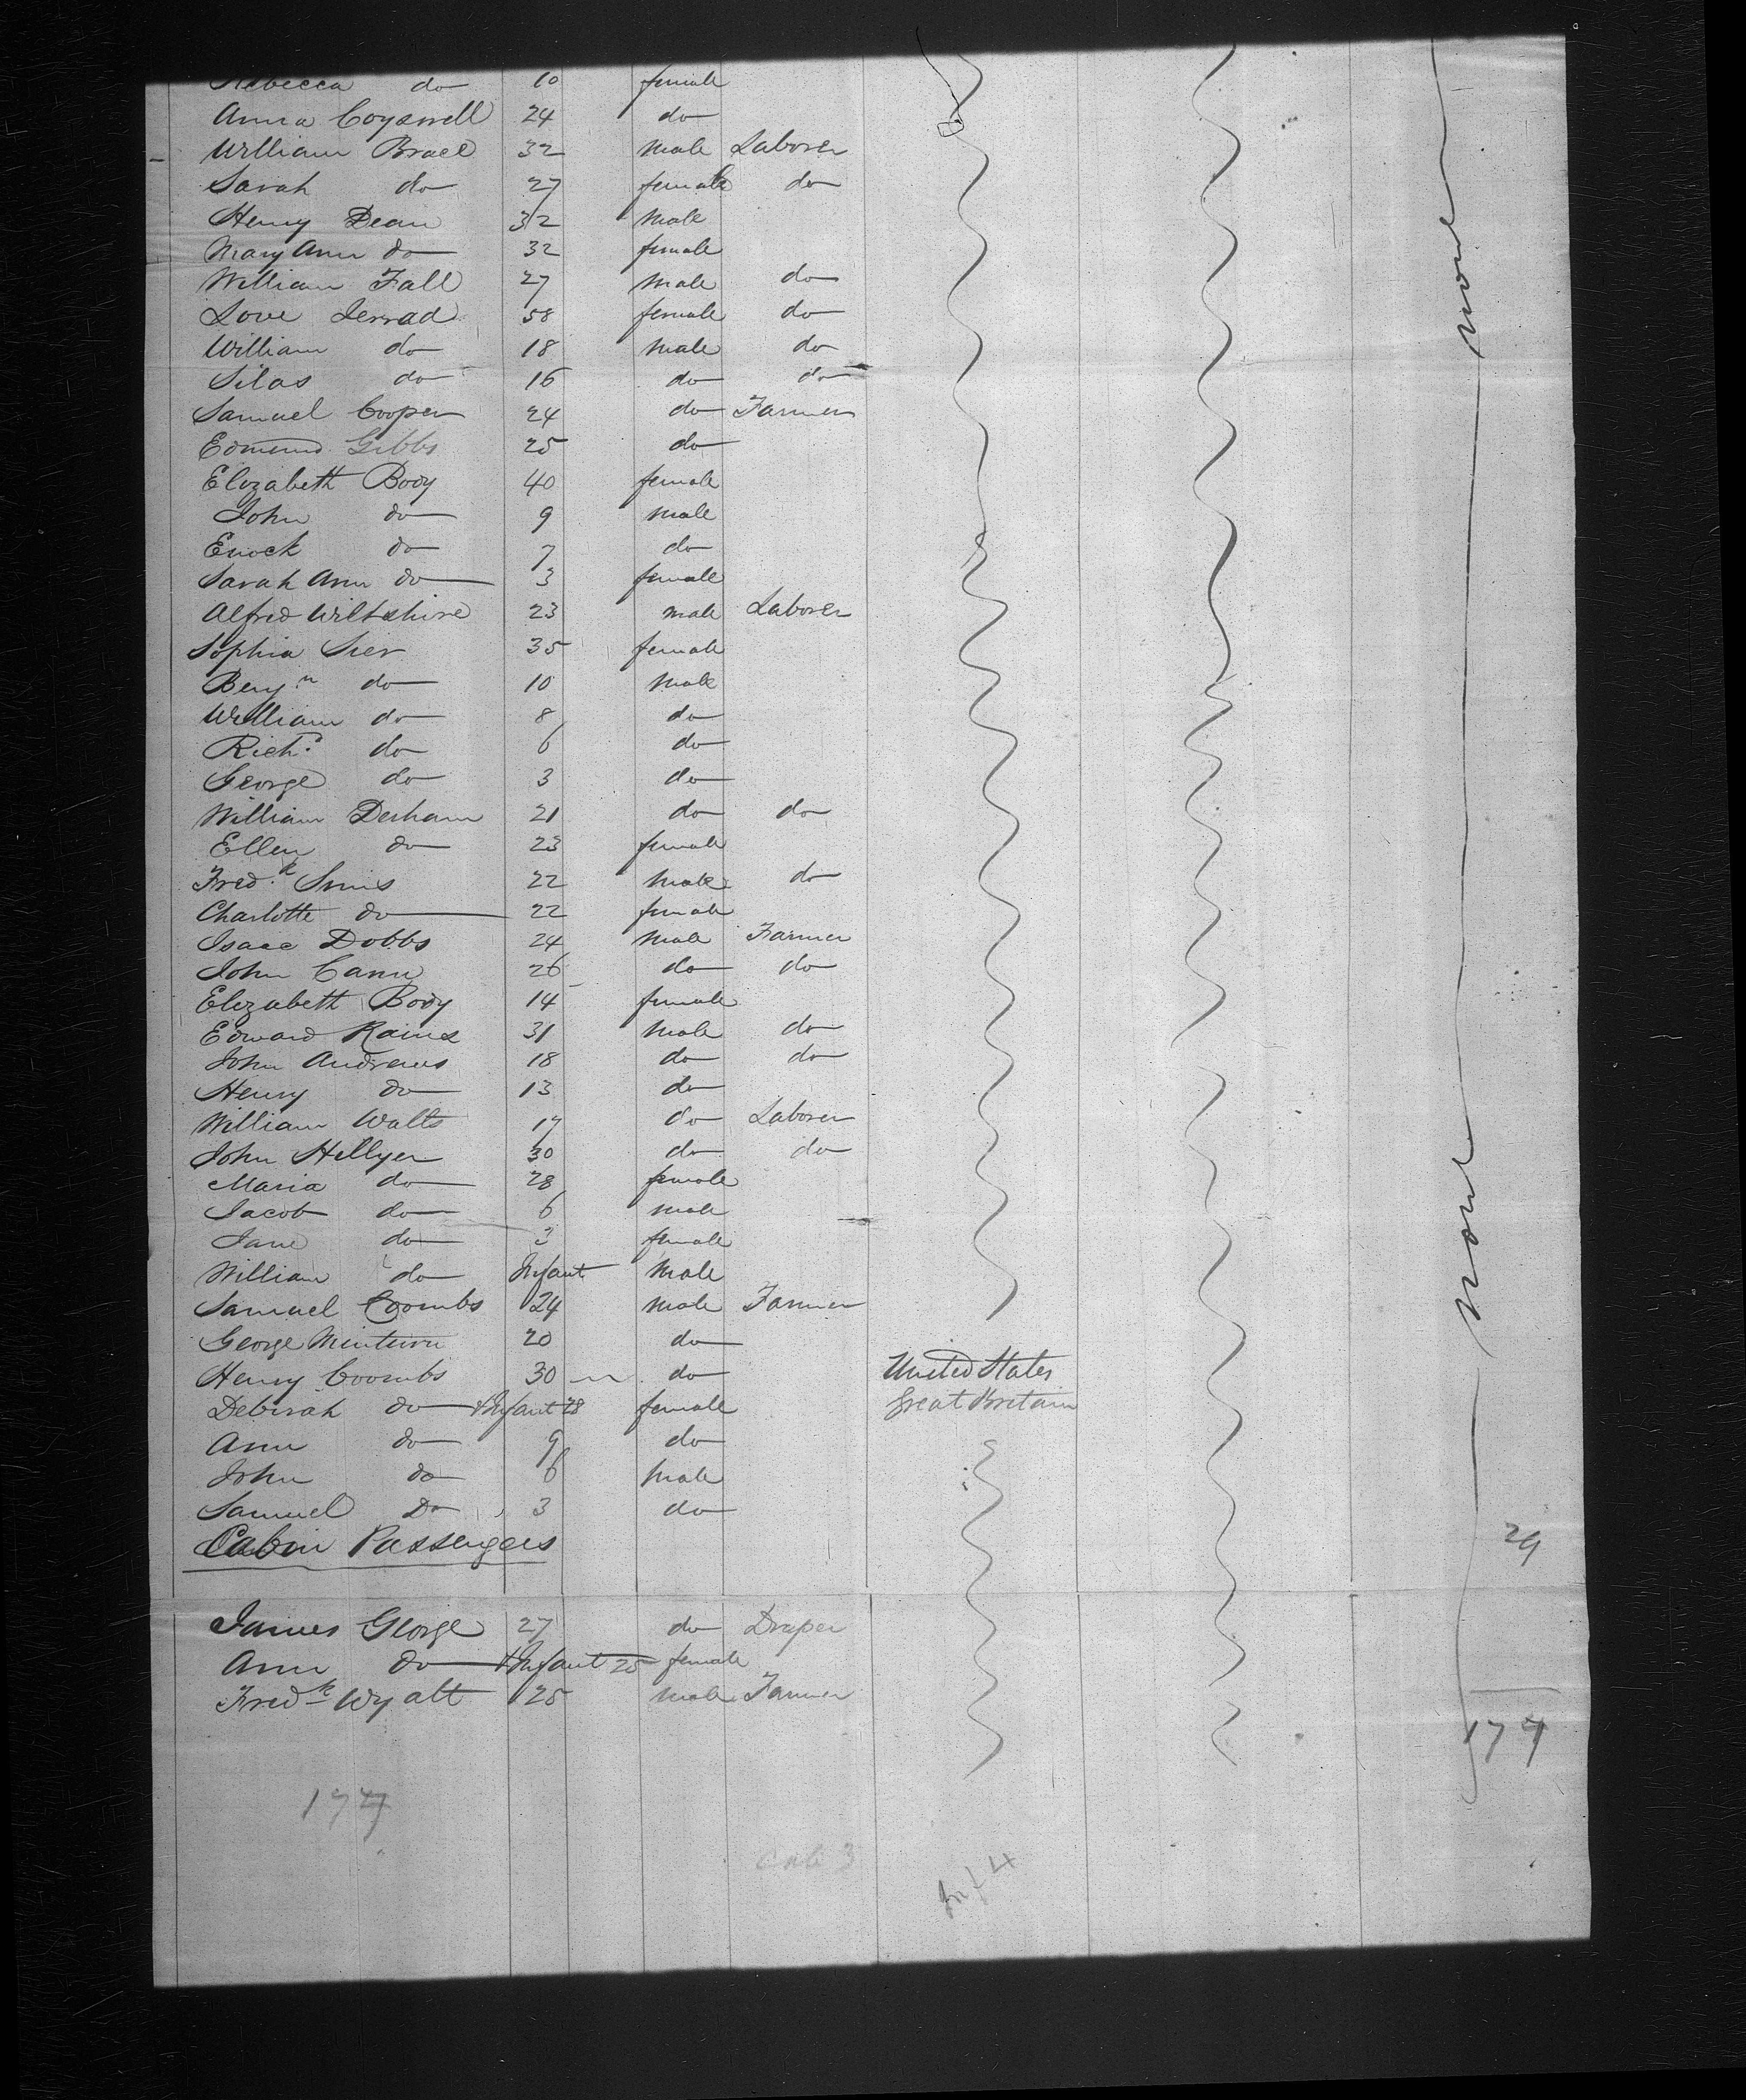 Rebecca do 10 female
Anna Coyswell 24 do
William Brael 32 male Laborer
Sarah do 27 female do
Henry Dean 32 male
Mary Ann do 32 female
William Fall 27 male do
Love Jerrad 58 female do
William do 18 male do
Silas do 16 do do
Samuel Cooper 24 do Farmer
Edmund Gibbs 25 do
Elizabeth Body 40 female
John do 9 male
Enock do 7 do
Sarah Ann do 3 female
Alfred Wiltshire 23 male Laborer
Sophia Sier 35 female
Benjn do 10 male
William do 8 do
Richd do 6 do
George do 3 do
William Derham 21 do do
Ellen do 23 female
Fredk Simis 22 male do
Charlotte do 22 female
Isaac Dobbs 24 male Farmer
John Cann 26 do do
Elizabeth Body 14 female
Edward Rains 31 male do
John Andrews 18 do do
Henry do 13 do
William Watts 17 do Laborer
John Hellyer 30 do do
Maria do 28 female
Jacob do 6 male
Jane do 3 female
William do Infant male
Samuel Coombs 24 male Farmer
George Minturn 20 do
Henry Coombs 30 do United States
Deborah do & Infant 28 female Great Britain
Ann do 9 do
John do 6 male
Samuel Do 3 do
Cabin Passengers
29
James George 27 do Draper
Ann do & Infant 25 female
Fredk Wyatt 25 male Farmer
177
177
Cab 3
Inf 4
none
none